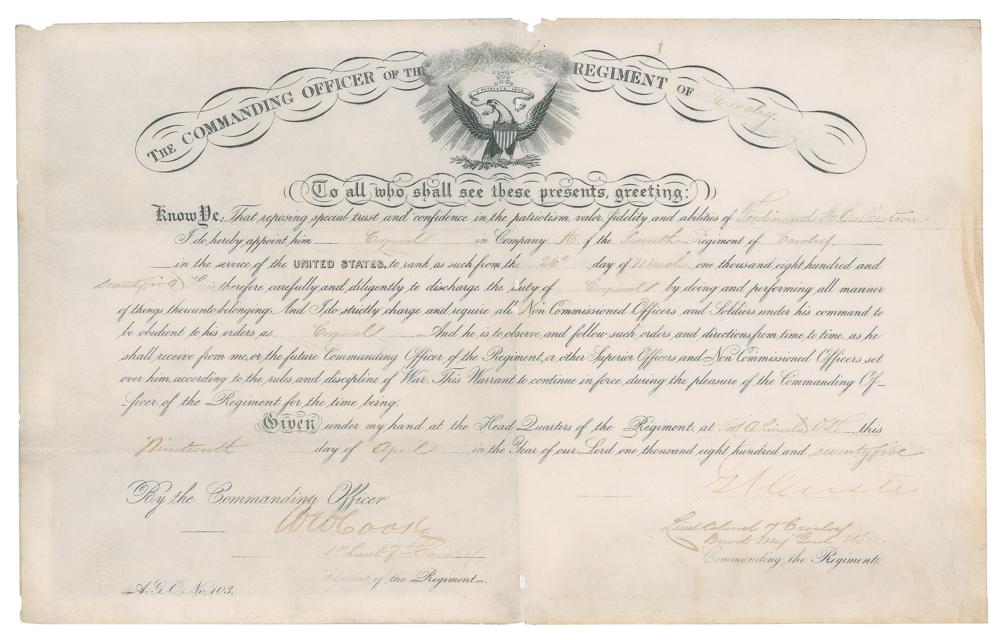 THE COMMANDING OFFICER OF THE REGIMENT OF Cavalry.
To all who shall see these presents, greeting:
Know Ye, That reposing special trust and confidence in the patriotism, valor, fidelity and abilities of Ferdinand A. Culbertson
I do hereby appoint him Corporal in Company A. of the Seventh Regiment of Cavalry.
in the service of the UNITED STATES, to rank as such from the 26th day of March one thousand eight hundred and
seventy five He is therefore carefully and diligently to discharge the duty of Corporal by doing and performing all manner
of things thereunto belonging. And I do strictly charge and require all Non Commissioned Officers and Soldiers under his command to
be obedient to his orders as Corporal And he is to observe and follow such orders and directions from time to time, as he
shall receive from me, or the future Commanding Officer of the Regiment, or other Superior Officers and Non Commissioned Officers set
over him, according to the rules and discipline of War. This Warrant to continue in force during the pleasure of the Commanding Of-
-ficer of the Regiment for the time being.
Given under my hand at the Head Quarters of the Regiment, at Fort A. Lincoln D.T. this
Nineteenth day of April in the Year of our Lord one thousand eight hundred and seventy five
G A Custer
By the Commanding Officer.
W W Cook
Lieut Colonel 7 Cavalry
Brevet Maj Genl U.S.A.
1st Lieut 7th Cavalry
Commanding the Regiment.
of the Regiment.
A.G.O. No. 103.